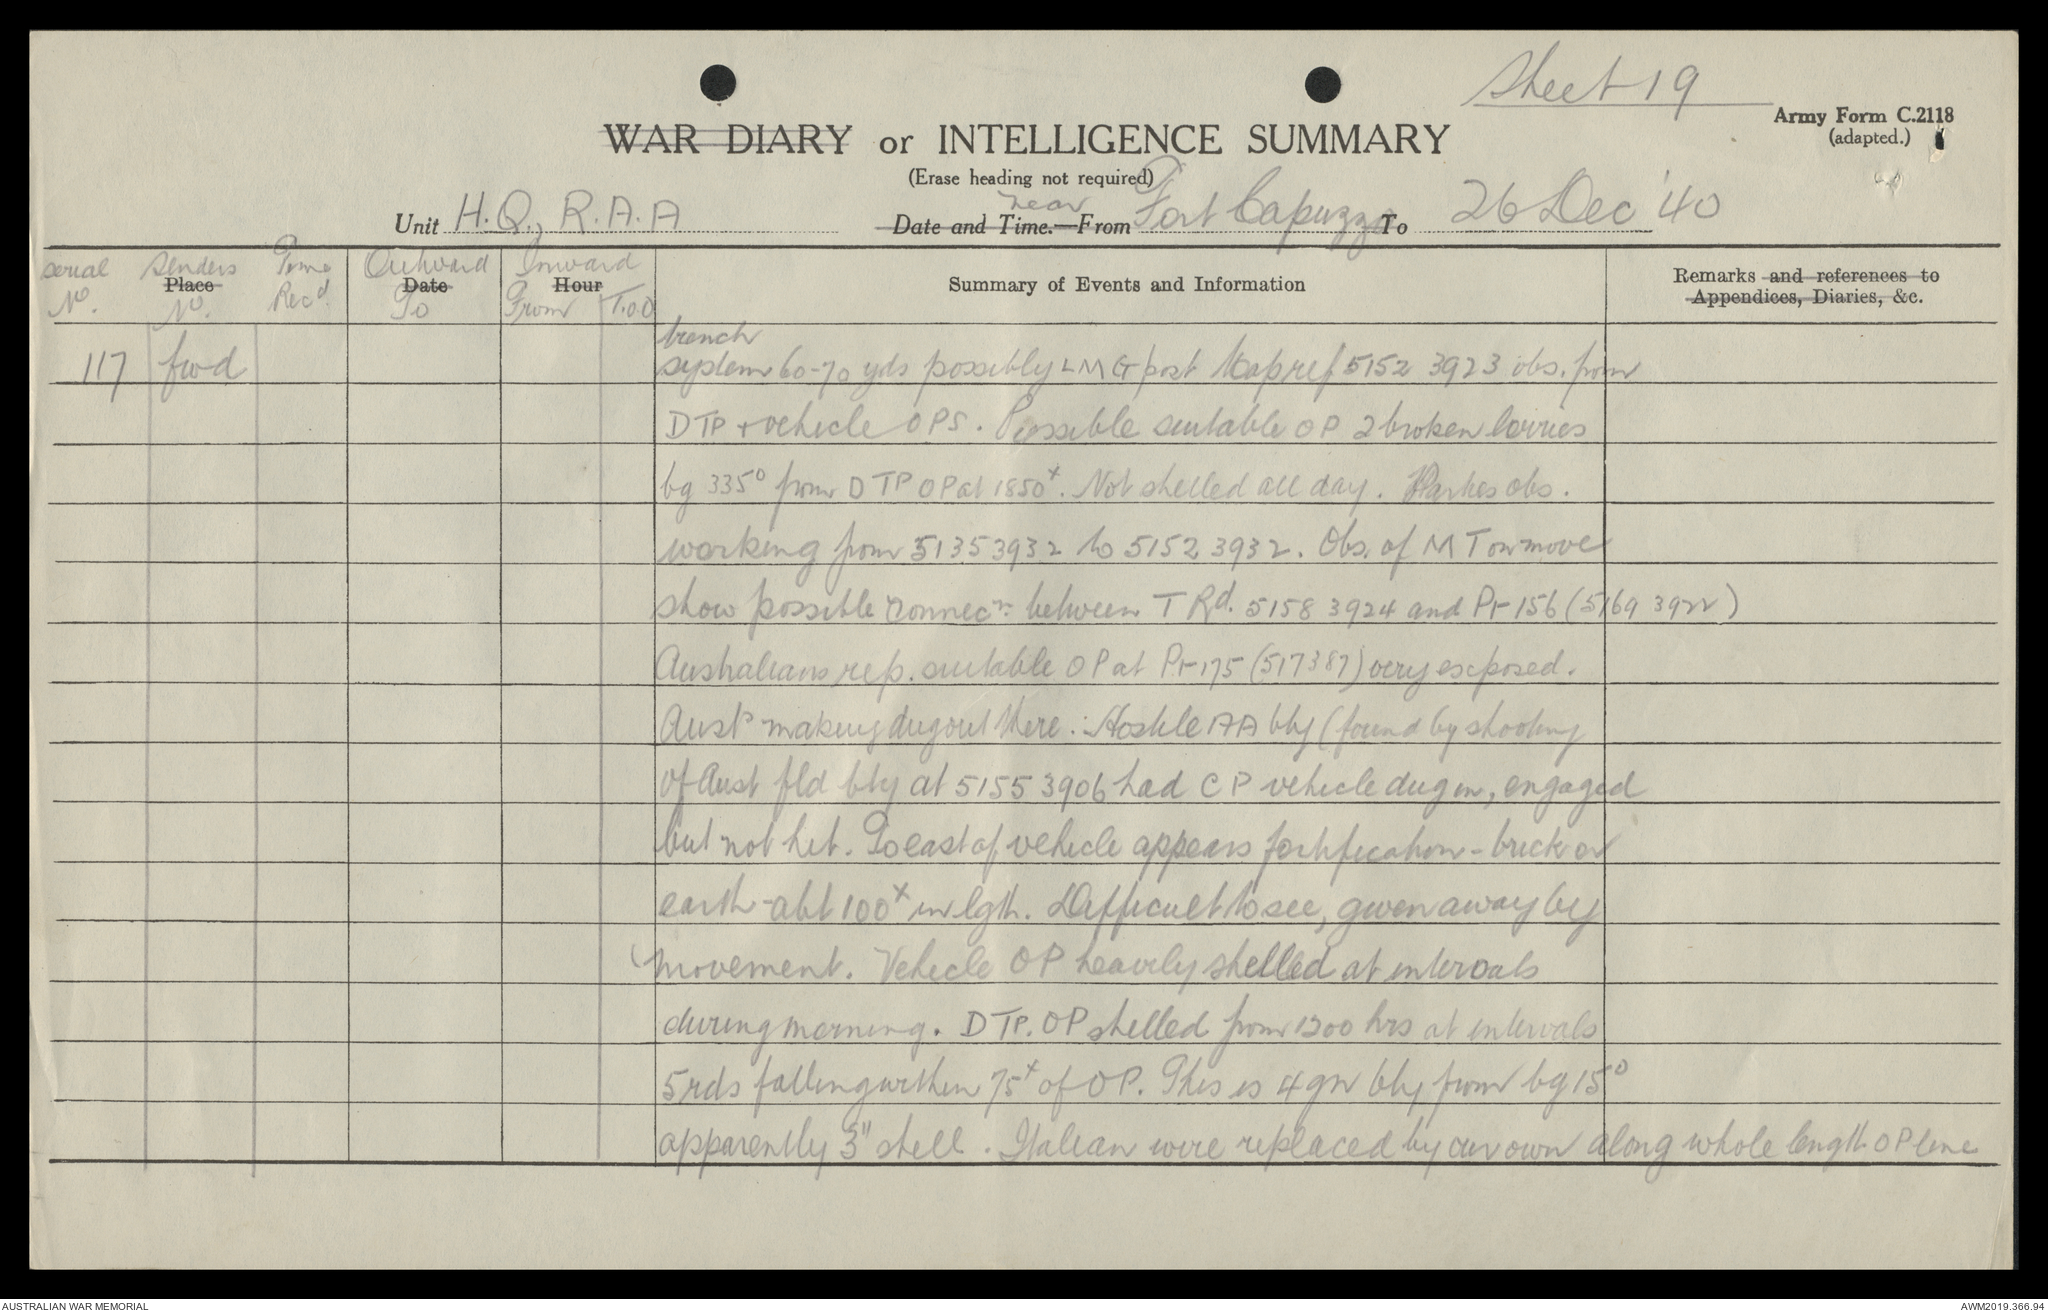 Sheet 19
Army Form C.2118
(adapted.)
WAR DIARY or INTELLIGENCE SUMMARY
(Erase heading not required)
Unit H.Q., R.A.A Date and Time.—From near Fort Capuzzo To 26 Dec '40
Serial No. Senders Place No. Time Recd. Outward Date To Inward Hour From T.O.O Summary of Events and Information Remarks and references to Appendices, Diaries, &c.
trench
117 fwd system 60-70 yds possibly LMG post Map ref 5152 3923 obs. from
DTP + vehicle OPS. Possible suitable OP 2 broken lorries
bg 335° from DTP OP at 1850x. Not shelled all day. Parties obs.
working from 5135 3932 to 5152 3932. Obs. of MT on move
show possible connecn. between T Rd. 5158 3924 and Pt 156 (5169 3922)
Australians rep. suitable OP at Pt 175 (517387) very exposed.
Austs making dugout there. Hostile AA bty (found by shooting
of Aust fld bty at 5155 3906 had CP vehicle dug in, engaged
but not hit. To east of vehicle appears fortification - brick or
earth - abt 100x in lgth. Difficult to see, given away by
movement. Vehicle OP heavily shelled at intervals
during morning. DTP. OP shelled from 1200 hrs at intervals
5 rds falling within 75x of OP. This is 4 gn bty from bg 15°
apparently 3" shell. Italian wire replaced by our own along whole length OP line
AUSTRALIAN WAR MEMORIAL
AWM2019.366.94